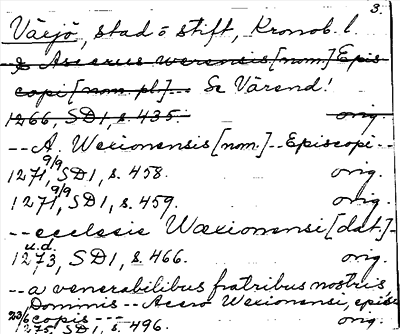 3.
Växjö, stad o stift, Kronob. l.
& Ascerus Werensis [nom] Epis
copi [nom. pl] -- Se Värend!
1266, SD1, s. 435. orig.
-- A. Wexionensis [nom.] -- Episcopi --
1271 9/9, SD1, s. 458. orig.
1271 9/9, SD1, s. 459. orig.
-- ecclesie Wæxionensi [dat.] -
1273, u.d. SD1, s. 466. orig.
-- a venerabilibus fratribus nostris
Dominis -- Acero Wexionensi, epis
copis ---
1275, 23/6 SD1, s. 496. orig.